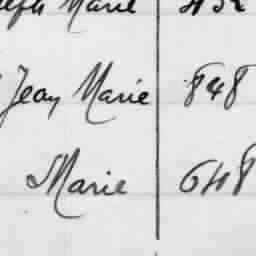 Marie 432
Jean Marie 848
Marie 648